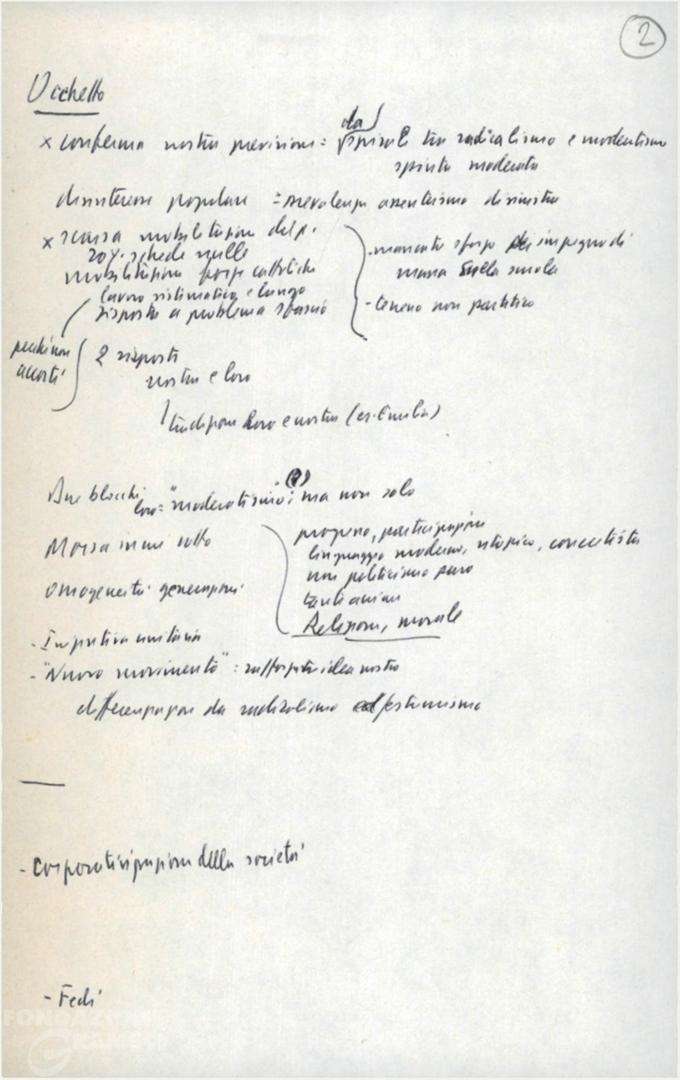 2
Occhetto
x conferma nostra previsione = da spirale tra radicalismo e moderatismo
spinta moderata
disinteresse popolare = prevalenza assenteismo di sinistra
x scarsa mobilitazione del p.
20% schede nulle
mobilitazione forze cattoliche
lavoro sistematico e lungo
risposta a problema sfascio
- mancato sforzo di impegno di
massa sulla scuola
- terreno non partitico
perché non
accorti
2 risposte
nostra e loro
tradizione loro e nostra (es. Emilia)
Due blocchi (?)
loro = "moderatismo"; ma non solo
Mossa in cui sotto
omogeneità generazioni
progresso, partecipazione
linguaggio moderno, utopico, concretista
non politicismo puro
Religione, morale
- Iniziativa unitaria
- "Nuovo movimento" = rafforzata idea nostra
differenziazione da radicalismo estremismo
- Corporativizzazione della società
- Fedi
FONDAZIONE
GRAMSCI